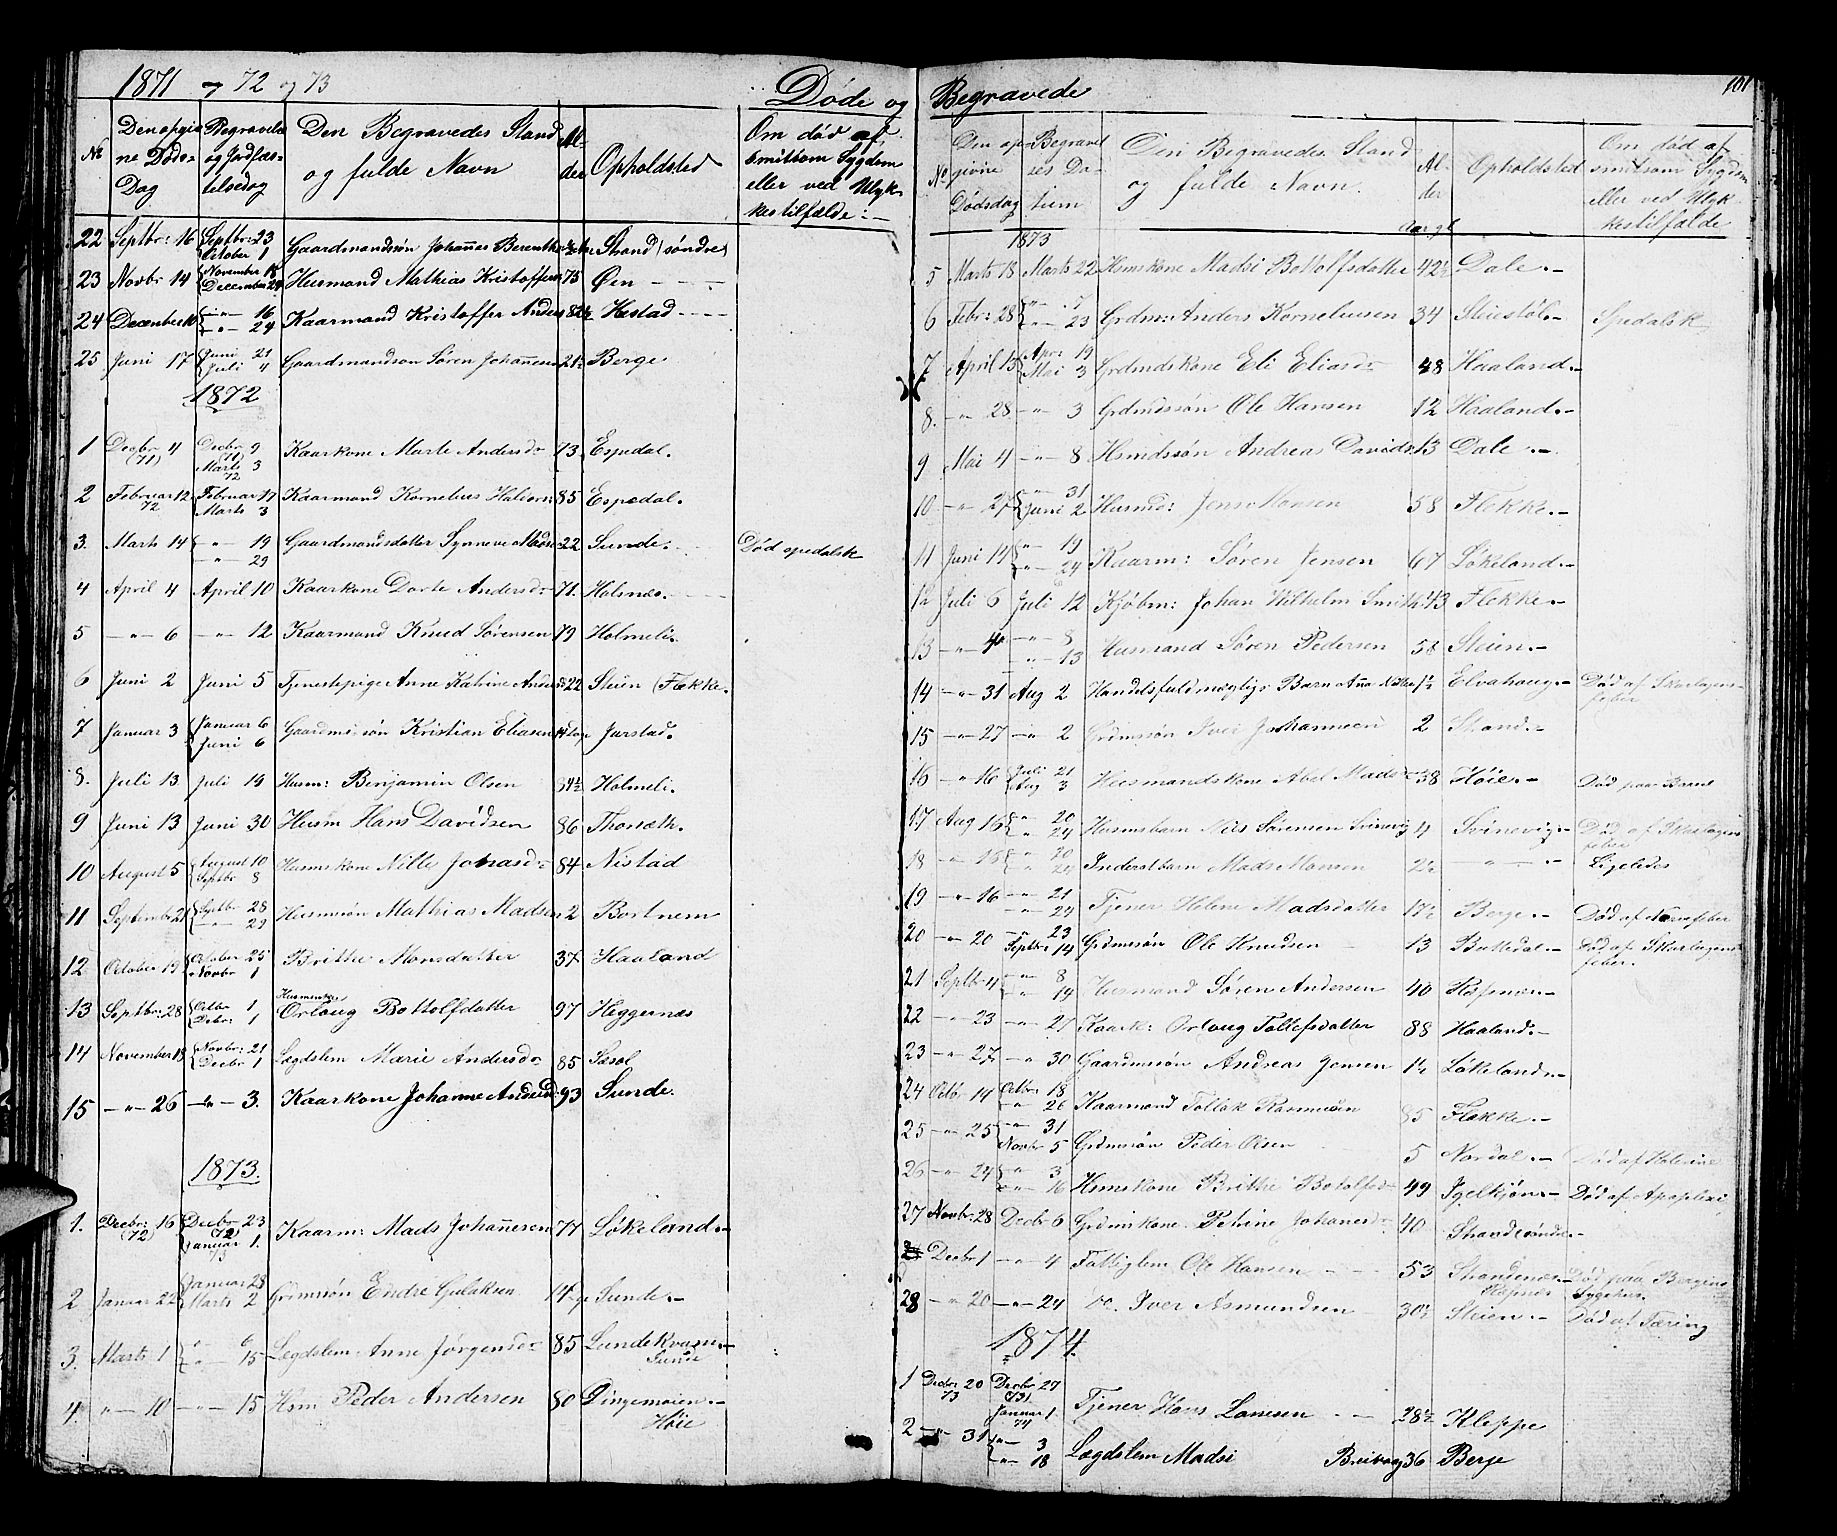 1871 og 72 og 73
Døde og
No
Den opgivne Døds-Dag
Begravelse og Jordfæstelsedag
Den Begravedes Stand og fulde Navn
Alder
Opholdsted
Om død af smitsom Sygdom eller ved Ulykkestilfælde:-
22 Septbr: 16 Septbr: 23 October 1 Gaardmandssøn Johannes Strand (søndre)
23 Novbr 14 November 18 December 29 Husmand Mathias Kristoffersen 75 Øen
24 December 10 -"- 16 -"- 24 Kaarmand Kristoffer Anders 82½ Hestad
25 Juni 17 Juni 21 Juli 4 Gaardmandssøn Søren Johannesen 21½ Berge
1872
1 Decbr 4 (71) Decbr 9 (71) Marts 3 72 Kaarkone Marte Andersdr 73 Espedal.
2 Februar 12 72 Februar 17 Marts 3 Kaarmand Kornelius 85 Espedal.
3. Marts 14 -"- 19 -"- 29 Gaardmandsdatter Synneve 22 Sunde. Død spedalsk
4 April 4 April 10 Kaarkone Dorte Andersdr 71. Holmæs.
5 -"- 6 -"- 12 Kaarmand Knud Sørensen 79 Holmeli.
6 Juni 2 Juni 5 Tjenestepige Anne Katrine Andersd: 22 Steien (Flekke.
7 Januar 3 Januar 6 Juni 6 Gaardm: søn Kristian Eliasen Jarstad.
8. Juli 13 Juli 19 Husm: Benjamin Olsen 84½ Holmeli.
9 Juni 13 Juni 30 Husm Hans Davidsen 86 Thoræth.
10 August 5 August 10 Septbr 8 Husmkone Nille Johasdr 84 Nistad
11 September 21 Septbr 28 -"- 29 Husmsøn Mathias Madsen 2 Bortnem
12 October 19 October 25 Novbr 1 Brithe Monsdatter 37. Haaland
13 Septbr: 28 Octbr 1 Decbr: 1 Husmenke Orloug Bottolfdatter 97 Heggernæs
14 November 18 Novbr: 21 Decbr 1 Lægdslem Marie Andersdr 85 Sæsol
15 -"- 26 -"- 3. Kaarkone Johanne Andersd: 93 Sunde.
1873.
1. Decbr: 16 (72) Decbr 23 (72) Januar 1. Kaarm: Mads Johannesen 77 Løkeland.-
2 Januar 22 Januar 28 Marts 2 Grdmsøn Endre Gulaksen Sunde.-
3. Marts 1 -"- 6 -"- 15 Lægdslem Anne Jørgensdr 85 Sundekvam.- Sunde
4. -"- 10 -"- 15 Hsm Peder Andersen 80 Dingemoien.- Høie
Begravede
161
No
Den opgivne Dødsdag
Begravelses Datum
Den Begravedes Stand og fulde Navn.
Alder
Opholdsted
Om død af smitsom Sygdom eller ved Ulykkestilfælde
1873
5 Marts 18 Marts 22 Hsmskone Madsi Bottolfsdatter 42½ Dale.-
6 Febr: 28 -"- 7 -"- 23 Grdm: Anders Korneliusen 34 Steiestøl.- Spedalsk
7 April 15 Apr: 19 Mai 3 Grdmdskone Eli Eliasdr 48 Haaland.-
8. -"- 28 -"- 3 Grdmdssøn Ole Hansen 12 Haaland.-
9 Mai 4 -"- 8 Hsmdssøn Andreas Davids: 13 Dale.-
10 -"- 27 -"- 31 Juni 2 Husmd: Jens Monsen 58 Flekke.-
11 Juni 14 -"- 19 -"- 24 Kaarm: Søren Jensen 67 Løkeland.-
12 Juli 6 Juli 12 Kjøbm: Johan Wilhelm Smith: 43 Flekke.-
13 -"- 4 -"- 8 -"- 13 Husmand Søren Pedersen 58 Steien.-
14 -"- 31 Aug 2 Handelsfuldmægtigs Barn Anna 1½ Elvahoug.- Død af Skarlagensfeber
15 -"- 27 -"- 2 Grdmssøn Iver Johannesen 2 Strand.-
16 -"- 16 Juli 21 Aug 3 Husmandskone Abel Madsdr 38 Høie.- Død paa Barsel
17 Aug 16 -"- 20 -"- 24 Husmsbarn Nils Sørensen Svinevig 4 Svinevig.- Død af Skarlagensfeber
18 -"- 15 -"- 20 -"- 24 Inderstbarn Mads Monsen 2½ -"- Ligeledes
19 -"- 16 -"- 21 -"- 24 Tjener Helene Madsdatter 17½ Berge.- Død af Nervefeber
20 -"- 20 -"- 23 Septbr: 14 Grdmssøn Ole Knudsen 13 Bottedal.- Død af Skarlagensfeber.
21 Septbr 4 -"- 8 -"- 14 Husmand Søren Andersen 40
22 -"- 23 -"- 27 Kaark: Orloug Tollefsdatter 88 Haaland.-
23 -"- 27 -"- 30 Gaardmssøn Andreas Jensen 1½ Løkeland.-
24 Octbr 14 Octbr: 18 -"- 26 Kaarmand Tollak Rasmusen 85 Flekke.-
25 -"- 25 -"- 31 Novbr 5 Grdmssøn Peder Olsen 5 Nordal.- Død af Kolerine
26 -"- 24 -"- 3 -"- 16 Hsmskone Brithe Botolfsdr 49 Igelkjøn.- Død af Apoplexi
27 Novbr: 28 Decbr 6 Grdmskone Petrine Johanesdr 40 Strandsøndre.-
Decbr 1 -"- 4 Fattiglem Ole Hansen 53 Strandenæs.- Død paa Bergens Sygehus.
28 -"- 20 -"- 24 do. Iver Asmundsen 30½ Steien.- Død af Tæring
1874.
1 Decbr 20 73 Decbr 27 (73) Januar 1. 74 Tjener Hans Larsen 28½ Kleppe
2 -"- 31 -"- 3 -"- 18 Lægdslem Madsi Breivag 36 Berge